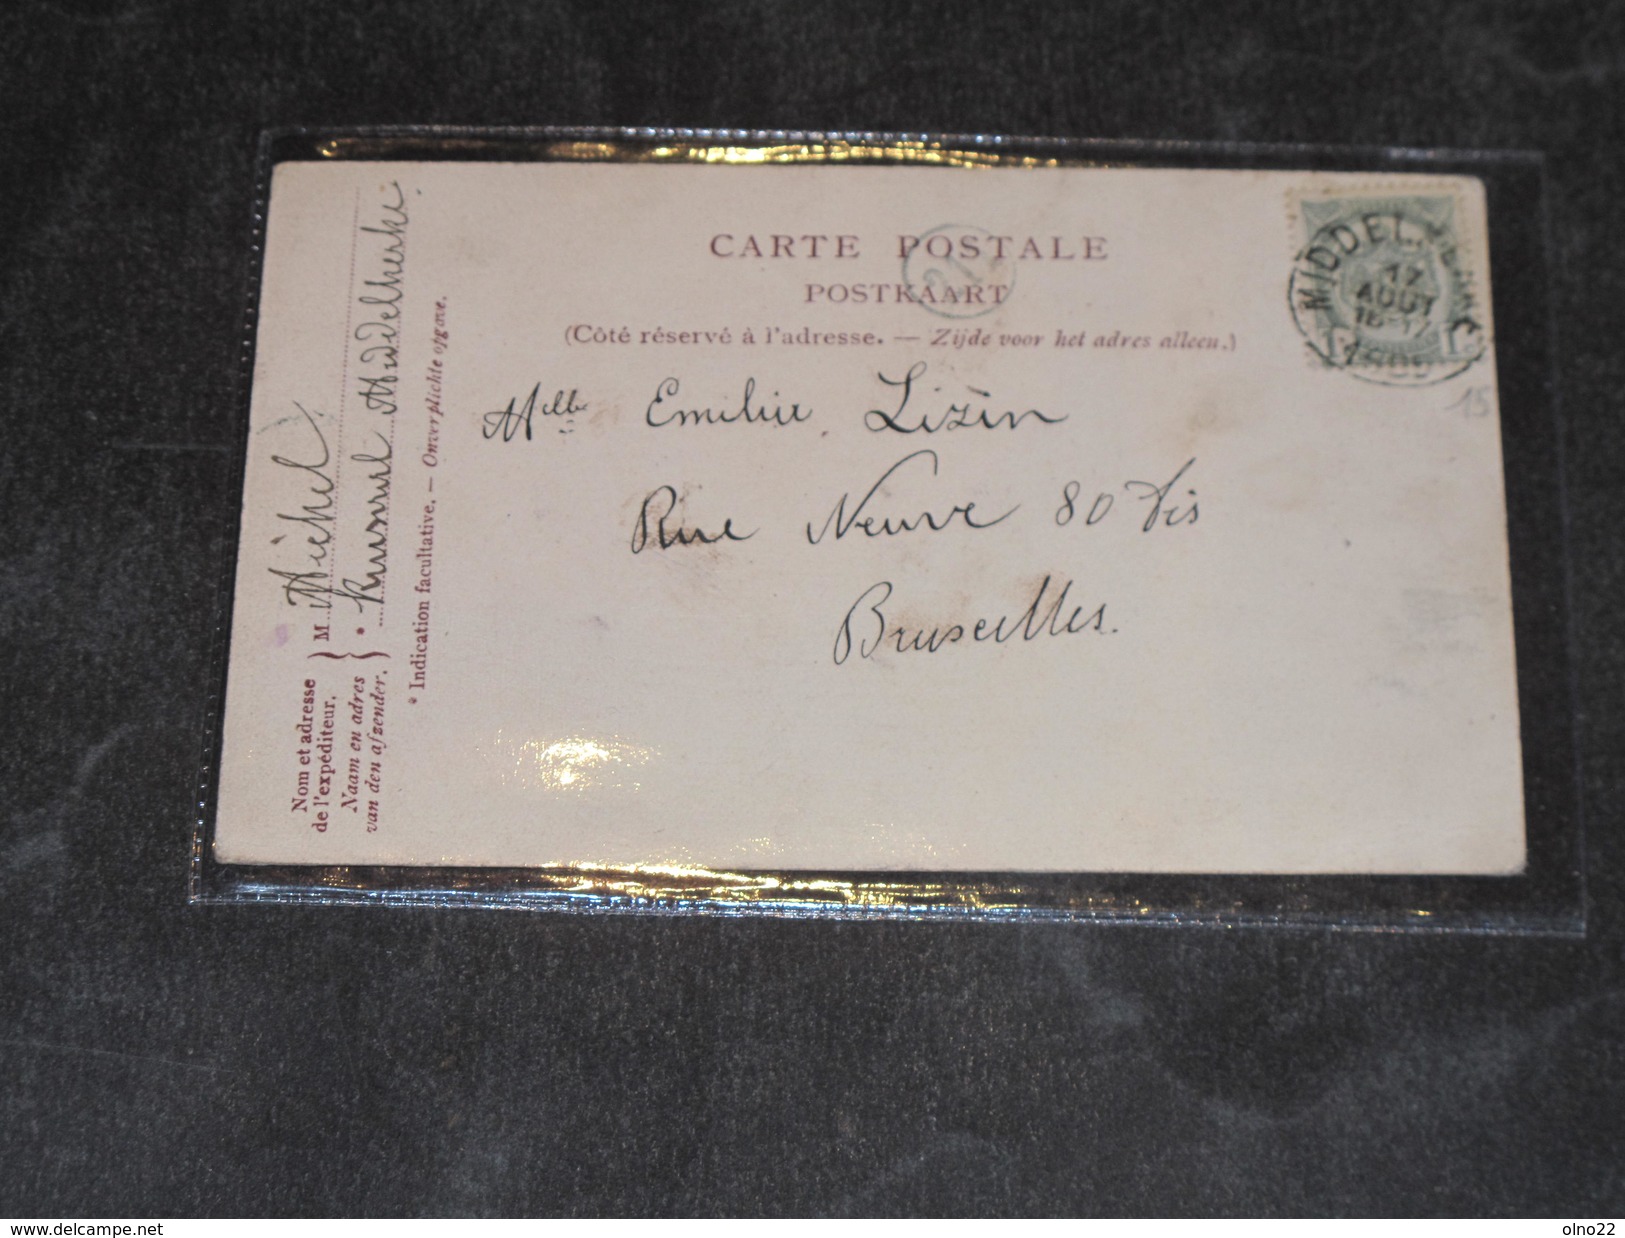 CARTE POSTALE
POSTKAART
(Côté réservé à l'adresse. — Zijde voor het adres alleen.)
Melle Emilie Lizin
Rue Neuve 80 bis
Bruxelles.
Nom et adresse
de l'expéditeur.
Naam en adres
van den afzender.
M Michel
* Middelkerke.
* Indication facultative. — Onverplichte opgave.
MIDDELKERKE
17
AOUT
16-17
15
www.delcampe.net
olno22